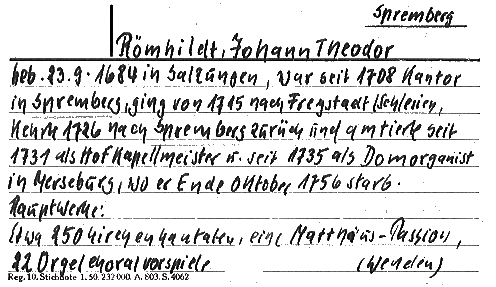 Spremberg
Römhildt, Johann Theodor
geb. 23.9.1684 in Salzungen, war seit 1708 Kantor
in Spremberg, ging von 1715 nach Freystadt/Schlesien,
kehrte 1726 nach Spremberg zurück und amtierte seit
1731 als Hofkapellmeister u. seit 1735 als Domorganist
in Merseburg, wo er Ende Oktober 1756 starb.
Hauptwerke:
Etwa 250 Kirchenkantaten, eine Matthäus-Passion,
22 Orgelchoralvorspiele (Wenden)
Reg. 10. Stichnote 1. 50. 232 000. A. 803. S. 4062